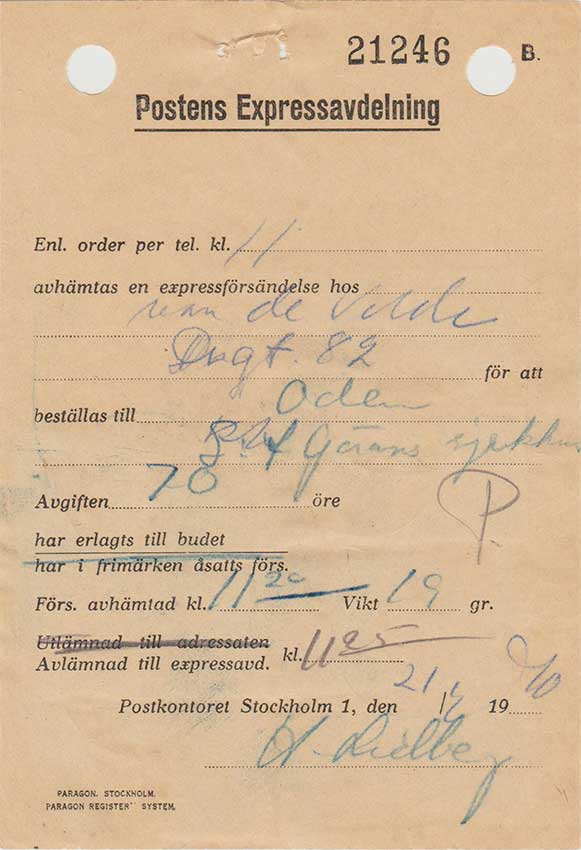 21246 B.
Postens Expressavdelning
Enl. order per tel. kl. 11
avhämtas en expressförsändelse hos
de Velde
82
för att
beställas till Oden
S:t Görans sjukhus
Avgiften 70 öre
P.
har erlagts till budet
har i frimärken åsatts förs.
Förs. avhämtad kl. 11 20 Vikt 19 gr.
Utlämnad till adressaten
Avlämnad till expressavd. kl. 11 25
Postkontoret Stockholm 1, den 21/ 19 40
PARAGON. STOCKHOLM.
PARAGON REGISTER" SYSTEM.